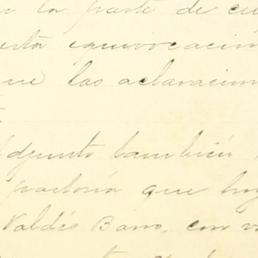 la parte de
esta equivocación
que las aclaracion
Adjunto también
que hoy
Valdés Bano, con